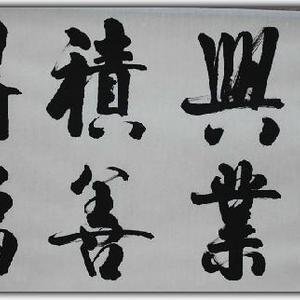 興業
積善